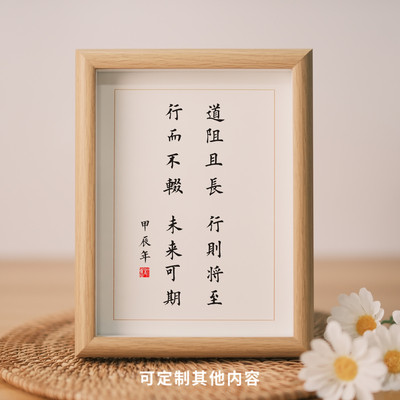 道阻且長 行則将至
行而不輟 未来可期
甲辰年
可定制其他内容